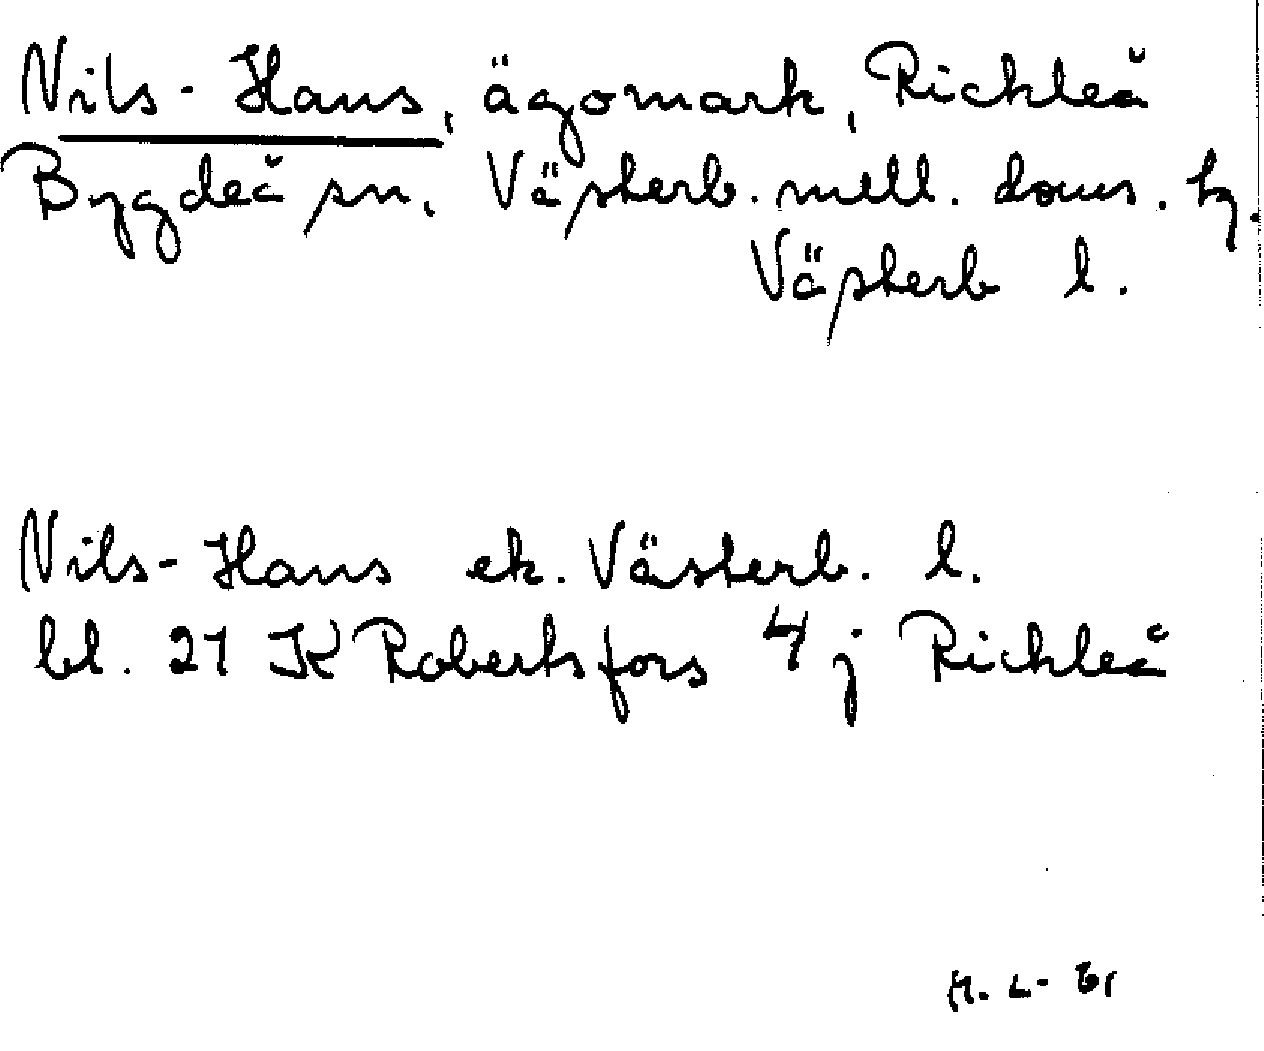 Nils-Hans, ägomark, Rickleå
Bygdeå sn, Västerb. mell. doms. tg.
Västerb l.
Nils-Hans ek. Västerb. l.
bl. 21 K Robertsfors 4 j Rickleå